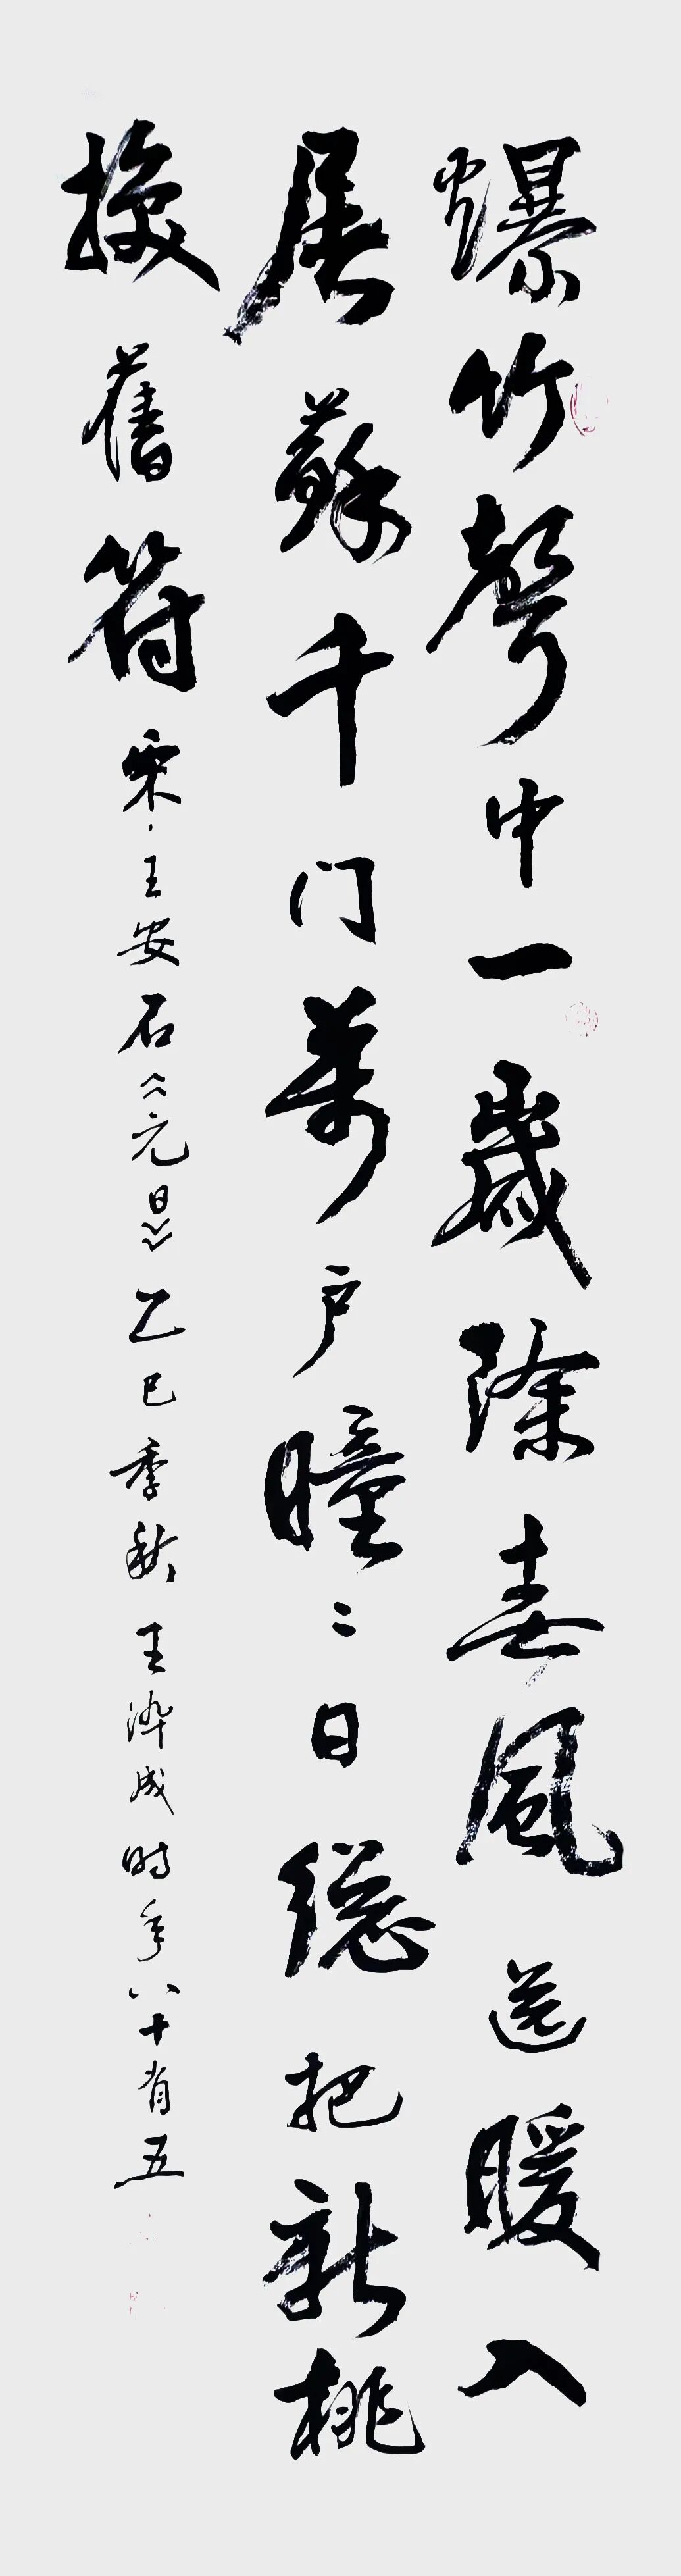 爆竹聲中一歲除春風送暖入
屠蘇千门萬户曈〻日總把新桃
換舊符 宋·王安石《元日》乙巳季秋 王浄成时年八十有五